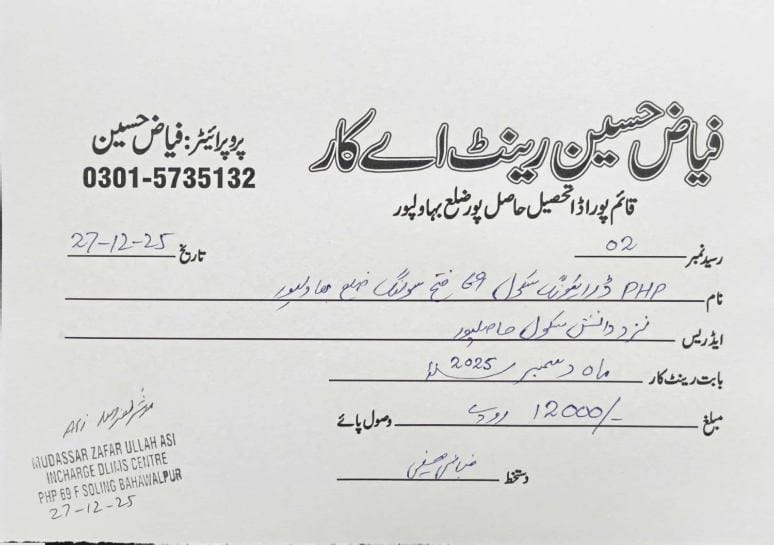 فیاض حسین رینٹ اے کار
پروپرائیٹر: فیاض حسین
0301-5735132
قائم پور اڈا تحصیل حاصل پور ضلع بہاولپور
رسید نمبر 02 تاریخ 27-12-25
نام PHP ڈرائیونگ سکول 69 فتح سولنگ ضلع بہاولپور
ایڈریس نزد دانش سکول حاصلپور
بابت رینٹ کار ماہ دسمبر 2025
مبلغ 12000/- روپے وصول پائے
دستخط
ASI
MUDASSAR ZAFAR ULLAH ASI
INCHARGE DLIMS CENTRE
PHP 69 F SOLING BAHAWALPUR
27-12-25